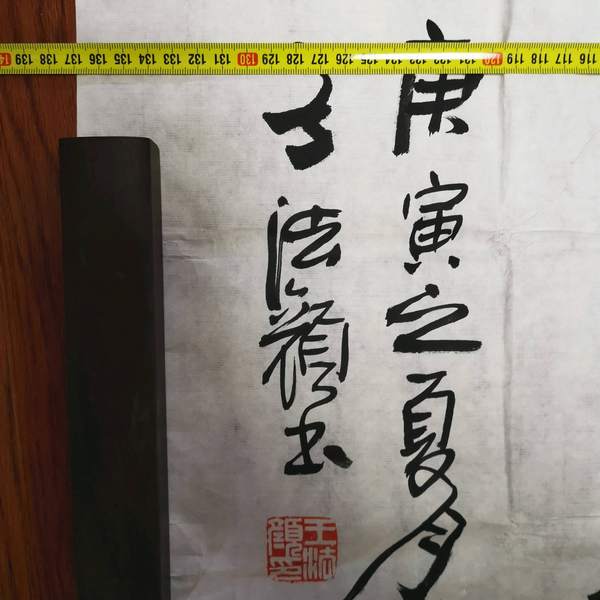 116 117 118 119 120 121 122 123 124 125 126 127 128 129 130 131 132 133 134 135 136 137 138 139
庚寅之夏月
法顏书
王法顏印